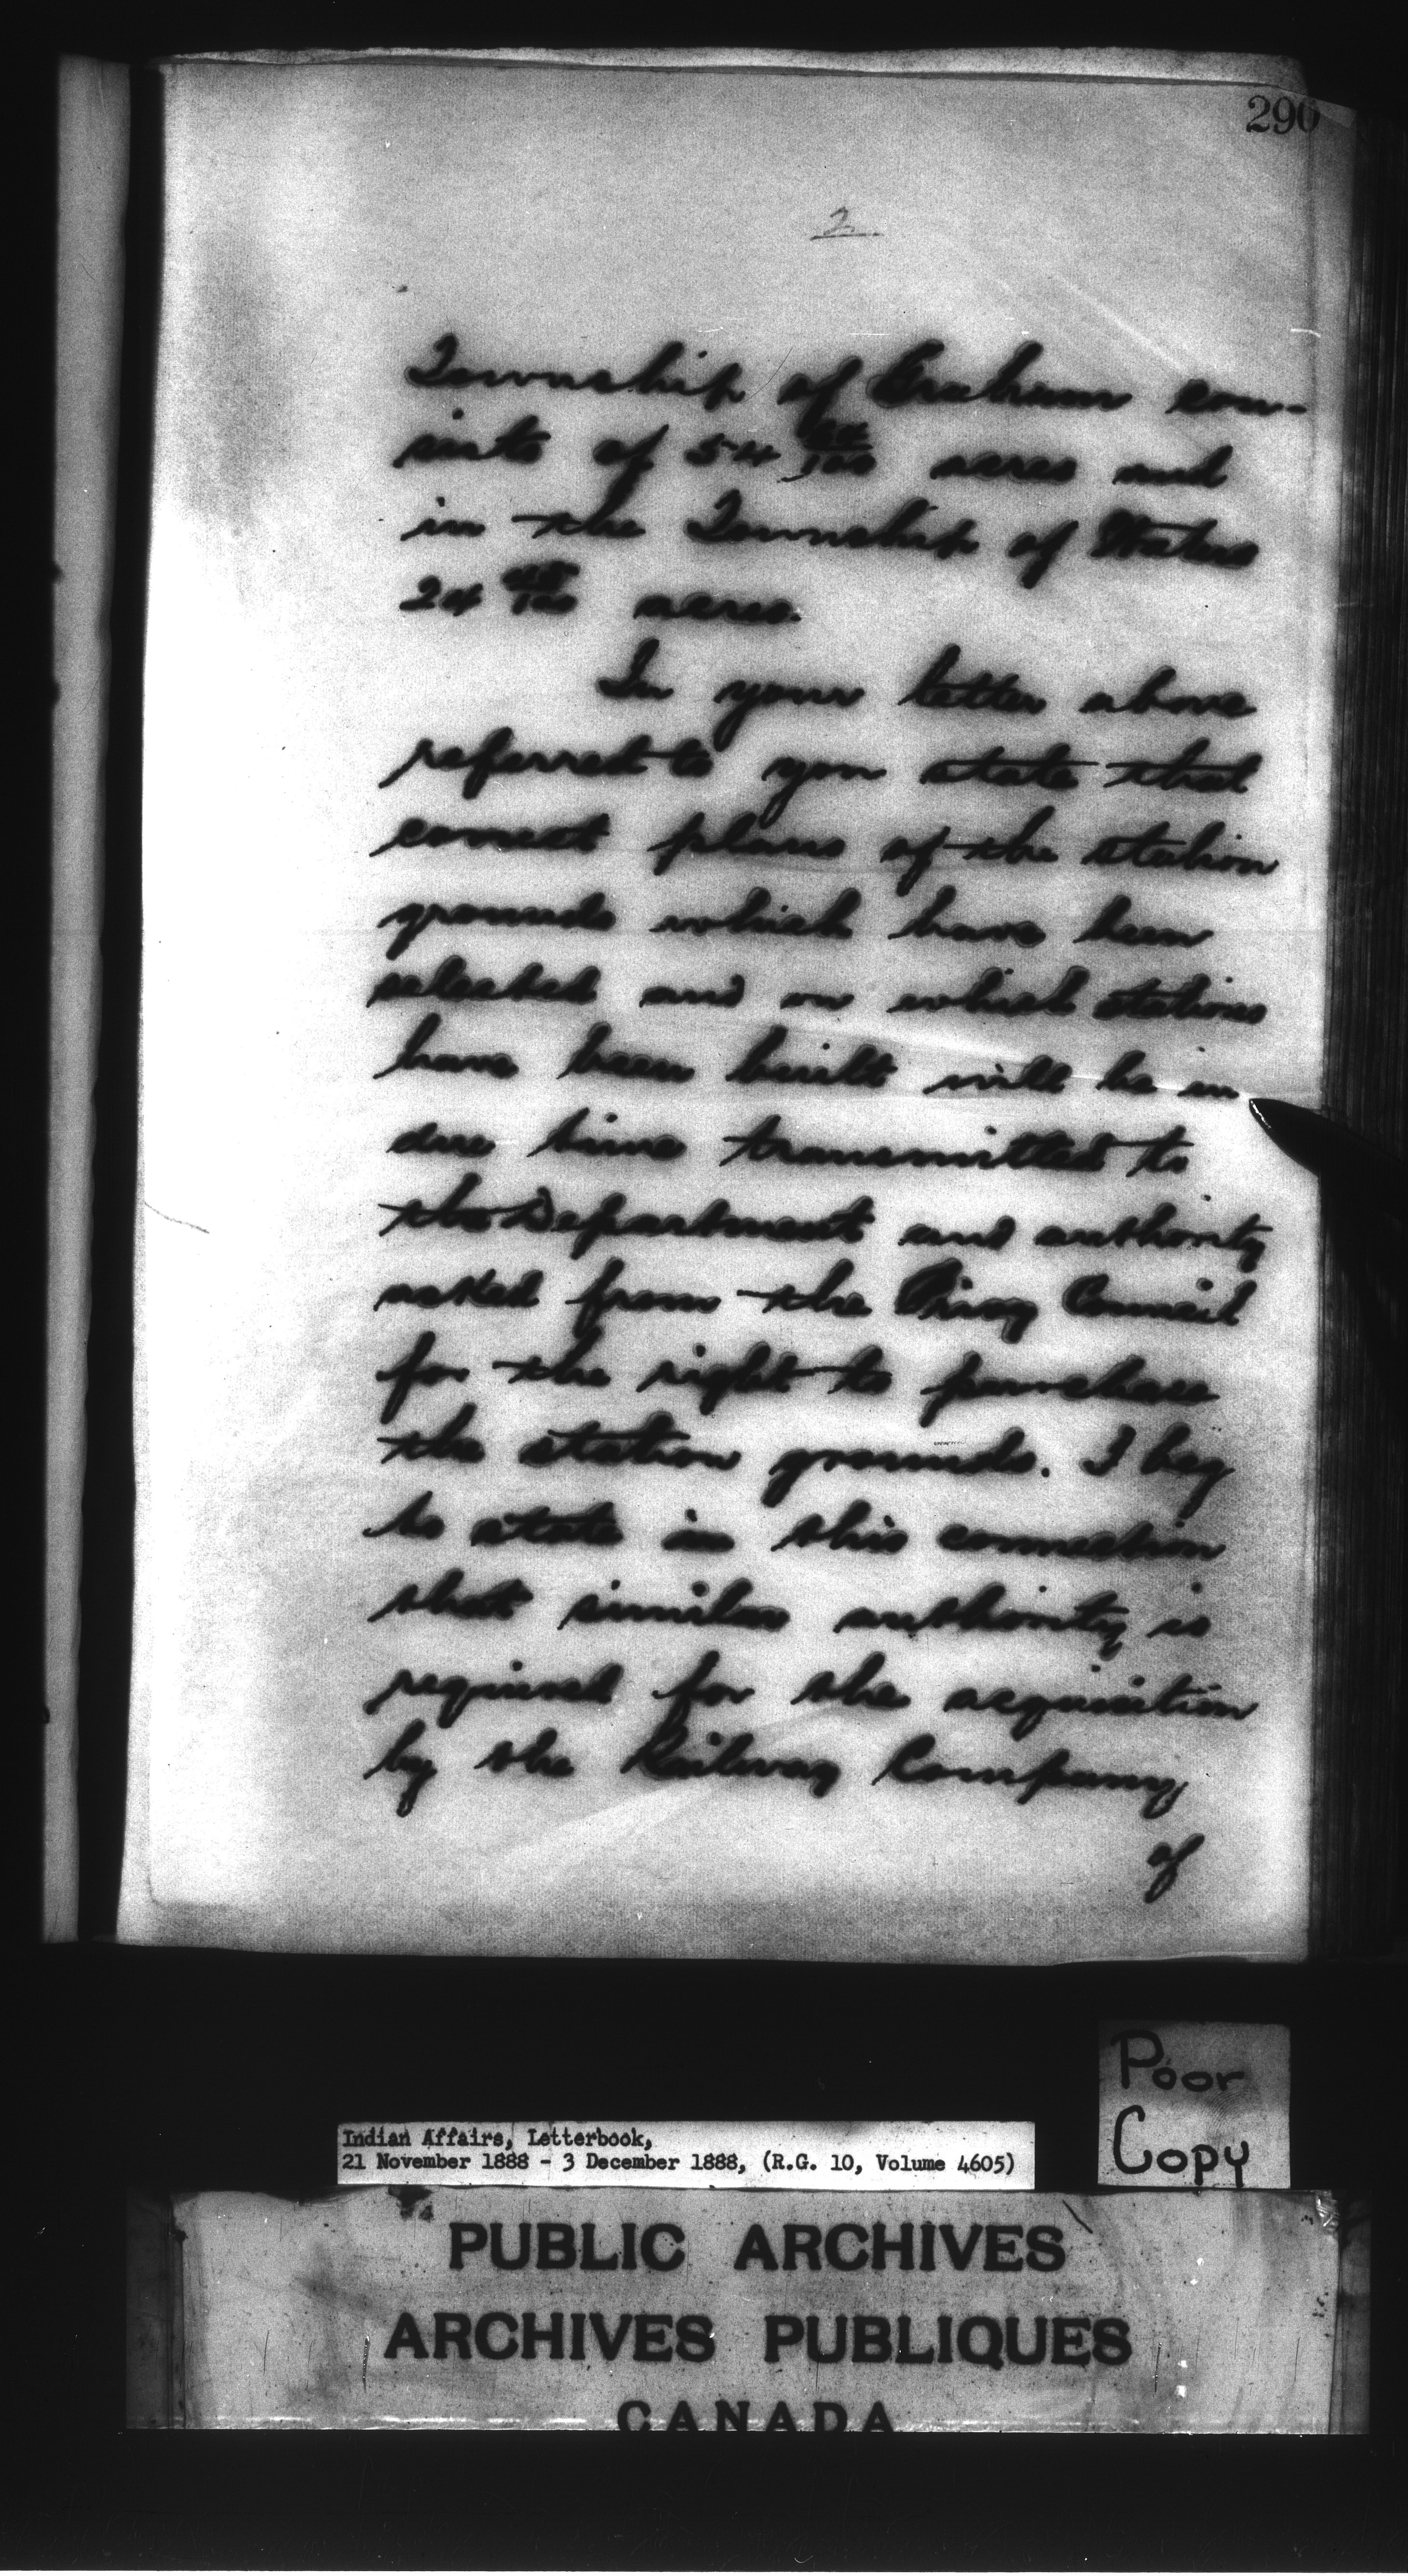 290
2
Township of Graham con-
sists of 54 /100 acres and
in the Township of Waters
24 /100 acres.
In your letter above
referred to you state that
correct plans of the station
grounds which have been
selected and on which stations
have been built will be in
due time transmitted to
the Department and authority
asked from the Privy Council
for the right to purchase
the station grounds. I beg
to state in this connection
that similar authority is
required for the acquisition
by the Railway Company
of
Poor
Copy
Indian Affairs, Letterbook,
21 November 1888 - 3 December 1888, (R.G. 10, Volume 4605)
PUBLIC ARCHIVES
ARCHIVES PUBLIQUES
CANADA